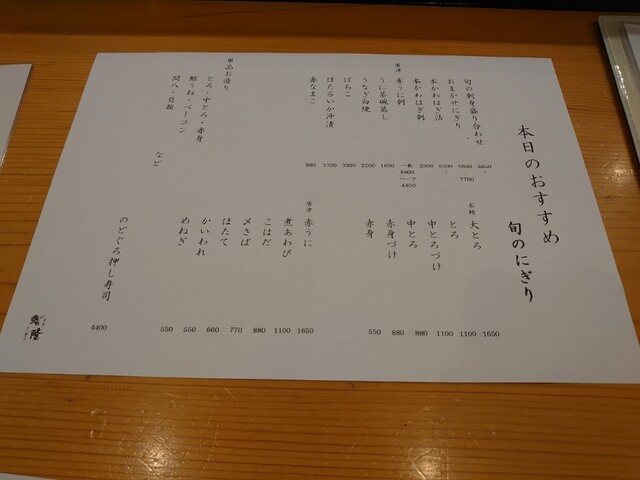 本日のおすすめ
旬の刺身盛り合わせ 3850～
おまかせにぎり 5500 7700
本かわはぎ活 5500～
本かわはぎ刺 3300
唐津 赤うに刺 一枚 8800 ハーフ 4400
うに茶碗蒸し 1650
うなぎ白焼 2200
ばちこ 3300
ほたるいか沖漬 1320
赤なまこ 880
単品お造り
とろ・中とろ・赤身
鯨うね・ベーコン
間八・貝類
など
旬のにぎり
本鮪 大とろ 1650
とろ 1100
中とろづけ 1100
中とろ 880
赤身づけ 880
赤身 550
唐津 赤うに 1650
煮あわび 1100
こはだ 880
〆さば 770
ほたて 660
かいわれ 550
めねぎ 550
のどぐろ押し寿司 4400